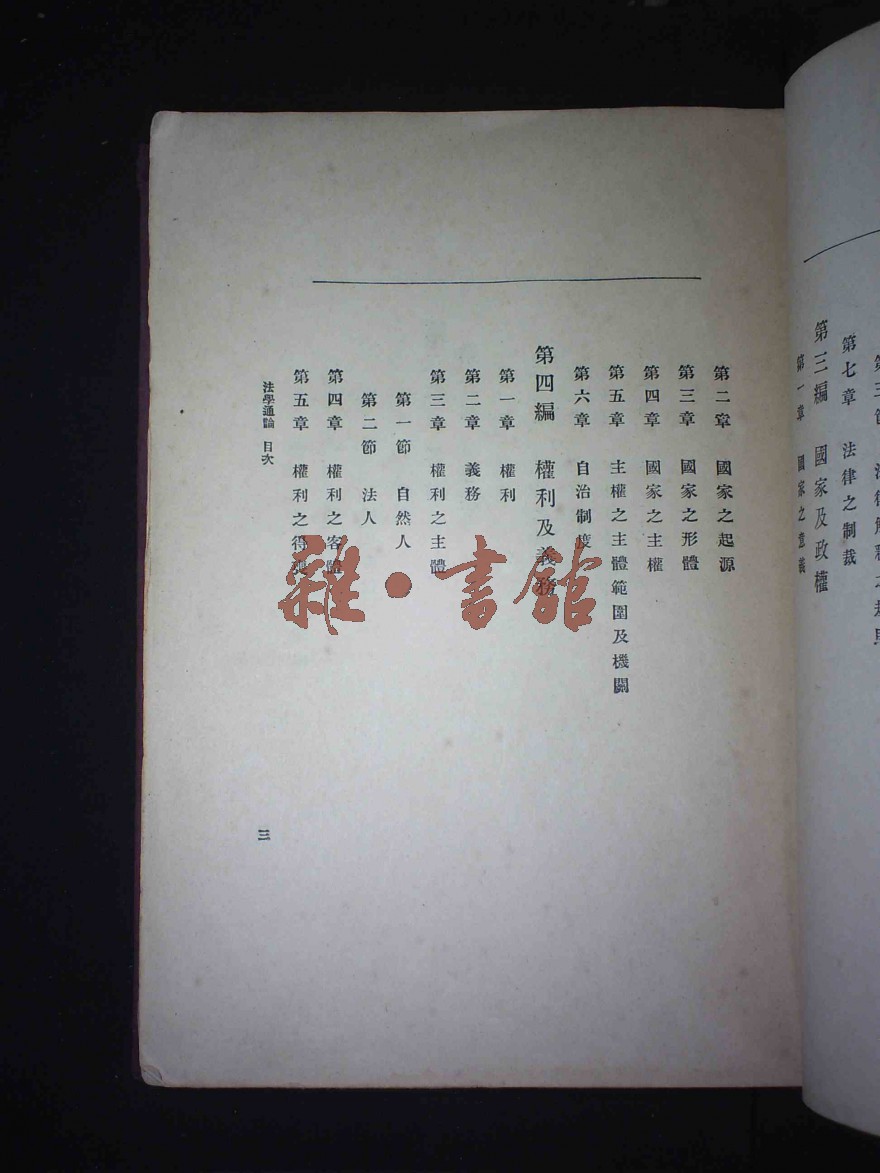 第七章　法律之制裁
第三編　國家及政權
第一章　國家之意義
第二章　國家之起源
第三章　國家之形體
第四章　國家之主權
第五章　主權之主體範圍及機關
第六章　自治制度
第四編　權利及義務
第一章　權利
第二章　義務
第三章　權利之主體
第一節　自然人
第二節　法人
第四章　權利之客體
第五章　權利之得喪
法學通論　目次
三
雜·書館